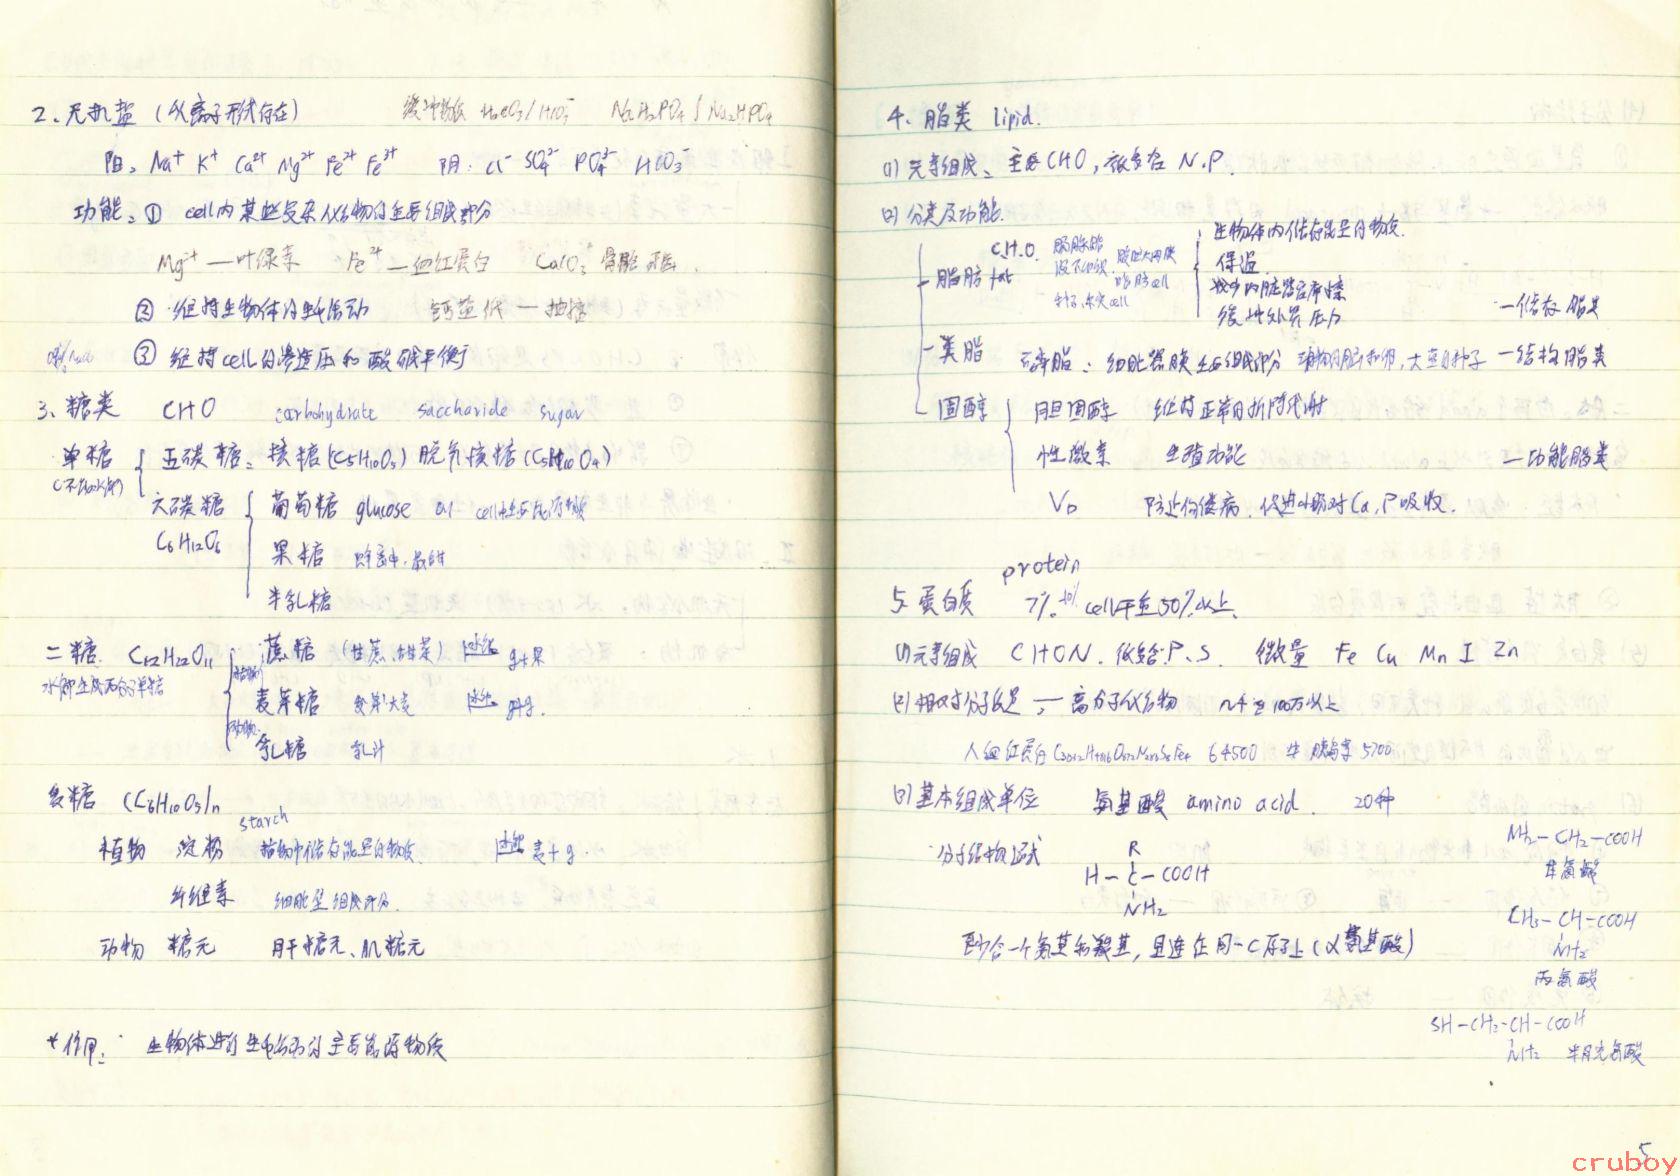 2、无机盐 (以离子形式存在) 缓冲物质 H₂CO₃/HCO₃⁻ NaH₂PO₄/Na₂HPO₄
阳: Na⁺ K⁺ Ca²⁺ Mg²⁺ Fe²⁺ Fe³⁺ 阴: Cl⁻ SO₄²⁻ PO₄³⁻ HCO₃⁻
功能: ① cell内某些复杂化合物的主要组成部分
Mg²⁺—叶绿素 Fe²⁺—血红蛋白 CaCO₃ 骨骼
② 维持生物体的生命活动 钙盐低—抽搐
③ 维持cell的渗透压和酸碱平衡
3、糖类 CHO carbohydrate saccharide sugar
单糖 五碳糖: 核糖(C₅H₁₀O₅) 脱氧核糖(C₅H₁₀O₄)
(不能水解)
六碳糖 葡萄糖 glucose cell
C₆H₁₂O₆
果糖
半乳糖
二糖 C₁₂H₂₂O₁₁ 蔗糖 (甘蔗、甜菜) g+果
水解生成两分子单糖
麦芽糖 g+g.
乳糖 乳汁
多糖 (C₆H₁₀O₅)n
starch
植物 淀粉 植物中储存能量的物质 麦+g.
纤维素 细胞壁组成成分.
动物 糖元 肝糖元、肌糖元
*作用: 生物体进行生命活动的主要能源物质
4、脂类 lipid.
(1) 元素组成: 主要CHO, 很多含 N.P.
(2) 分类及功能
脂肪 fat C.H.O. 生物体内储存能量的物质.
保温
减少内脏器官摩擦
缓冲外界压力
—储存脂类
类脂 磷脂: 细胞器膜主要组成部分 动物的脑和卵, 大豆的种子 —结构脂类
固醇 胆固醇 维持正常新陈代谢
性激素 生殖功能 —功能脂类
V_D 防止佝偻病、促进小肠对Ca, P吸收.
protein
5、蛋白质 7%~10% cell干重50%以上
(1) 元素组成 CHON. 很多含P、S. 微量 Fe Cu Mn I Zn
(2) 相对分子质量: 高分子化合物 几千至100万以上
人血红蛋白 64500 牛胰岛素 5700
(3) 基本组成单位 氨基酸 amino acid. 20种
分子结构通式
R
H—C—COOH
NH₂
至少含一个氨基和羧基, 且连在同一C原子上 (α氨基酸)
NH₂—CH₂—COOH
甘氨酸
CH₃—CH—COOH
NH₂
丙氨酸
SH—CH₂—CH—COOH
NH₂ 半胱氨酸
5
cruboy